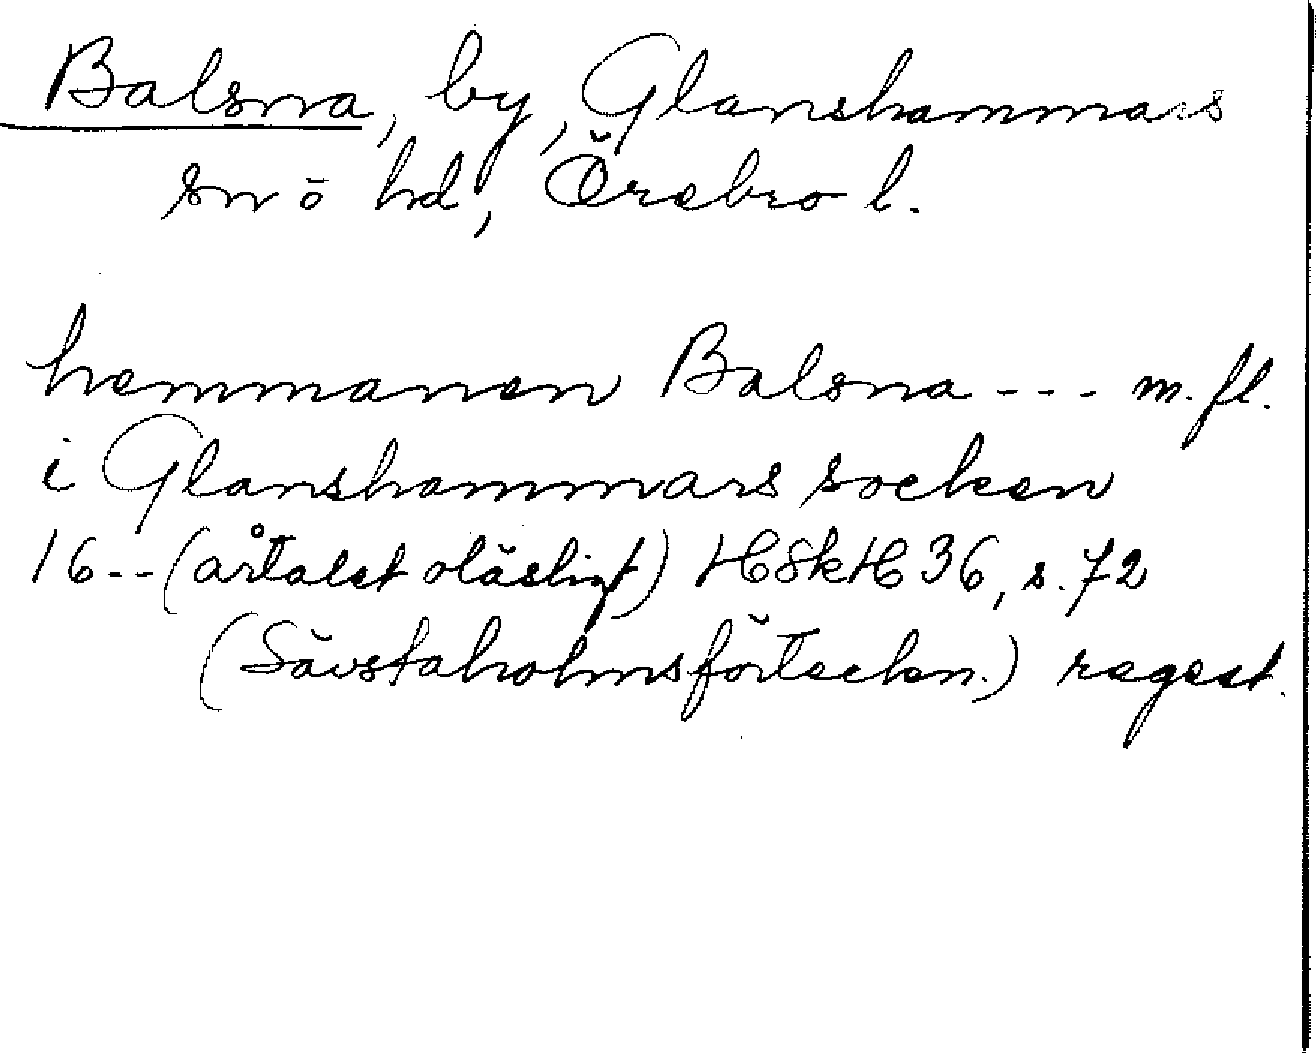 Balsna, by, Glanshammars
sn o hd, Örebro l.
hemmanen Balsna --- m. fl.
i Glanshammars socken
16-- (årtalet oläsligt) HSkH 36, s. 72
(Sävstaholmsförteckn.) regest.